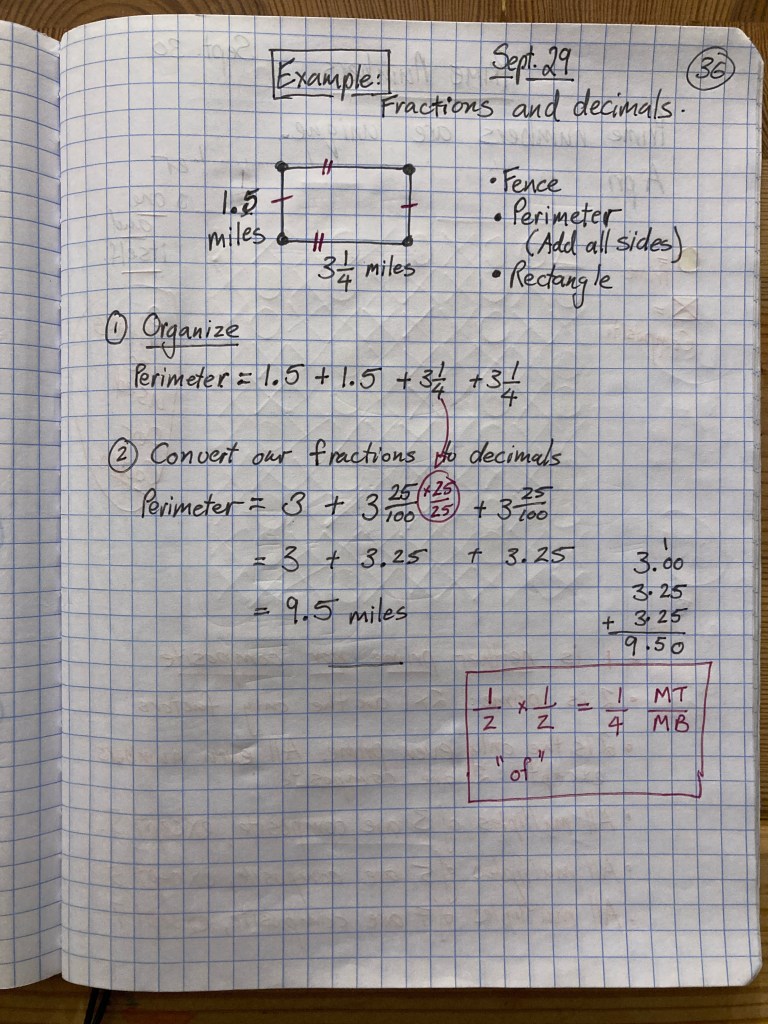 Sept. 29
36
Example:
Fractions and decimals.
1.5
miles
3 1/4 miles
• Fence
• Perimeter
(Add all sides)
• Rectangle
① Organize
Perimeter = 1.5 + 1.5 + 3 1/4 + 3 1/4
② Convert our fractions to decimals
Perimeter = 3 + 3 25/100 × 25/25 + 3 25/100
= 3 + 3.25 + 3.25
= 9.5 miles
1
3.00
3.25
+ 3.25
9.50
1/2 × 1/2 = 1/4 MT/MB
"of"